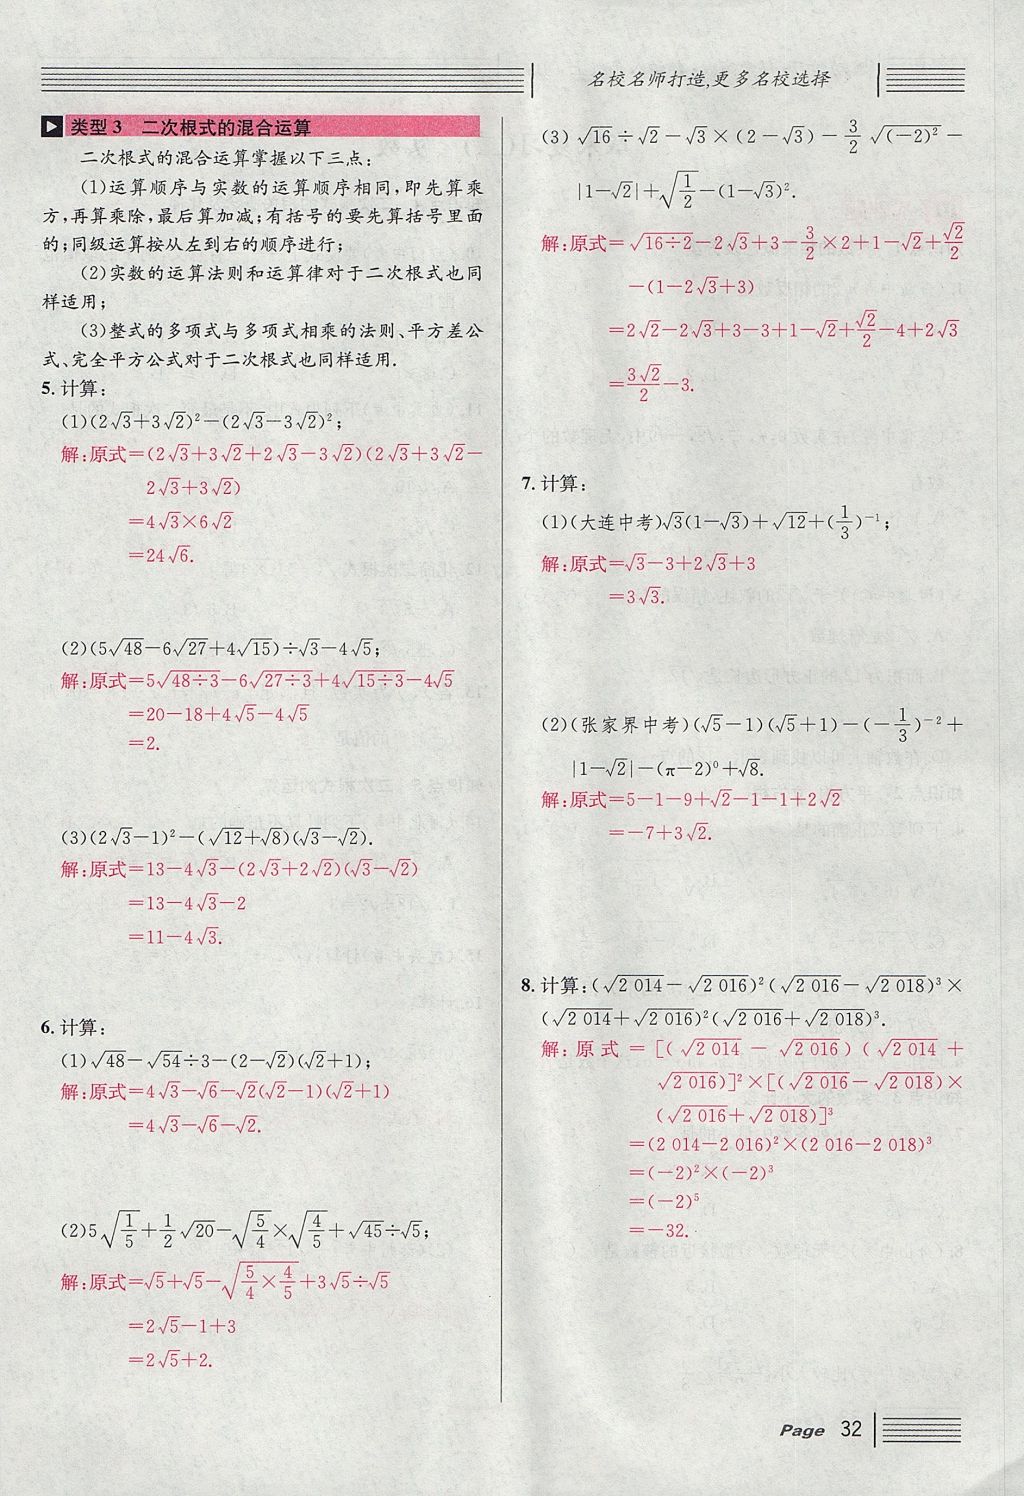 名校名师打造,更多名校选择
类型3 二次根式的混合运算
二次根式的混合运算掌握以下三点:
(1)运算顺序与实数的运算顺序相同,即先算乘
方,再算乘除,最后算加减;有括号的要先算括号里面
的;同级运算按从左到右的顺序进行;
(2)实数的运算法则和运算律对于二次根式也同
样适用;
(3)整式的多项式与多项式相乘的法则、平方差公
式、完全平方公式对于二次根式也同样适用.
5.计算:
(1)(2√3+3√2)²-(2√3-3√2)²;
解:原式=(2√3+3√2+2√3-3√2)(2√3+3√2-
2√3+3√2)
=4√3×6√2
=24√6.
(2)(5√48-6√27+4√15)÷√3-4√5;
解:原式=5√(48÷3)-6√(27÷3)+4√(15÷3)-4√5
=20-18+4√5-4√5
=2.
(3)(2√3-1)²-(√12+√8)(√3-√2).
解:原式=13-4√3-(2√3+2√2)(√3-√2)
=13-4√3-2
=11-4√3.
6.计算:
(1)√48-√54÷3-(2-√2)(√2+1);
解:原式=4√3-√6-√2(√2-1)(√2+1)
=4√3-√6-√2.
(2)5√(1/5)+1/2√20-√(5/4)×√(4/5)+√45÷√5;
解:原式=√5+√5-√(5/4×4/5)+3√5÷√5
=2√5-1+3
=2√5+2.
(3)√16÷√2-√3×(2-√3)-3/2√(-2)²-
|1-√2|+√(1/2)-(1-√3)².
解:原式=√(16÷2)-2√3+3-3/2×2+1-√2+√2/2
-(1-2√3+3)
=2√2-2√3+3-3+1-√2+√2/2-4+2√3
=3√2/2-3.
7.计算:
(1)(大连中考)√3(1-√3)+√12+(1/3)⁻¹;
解:原式=√3-3+2√3+3
=3√3.
(2)(张家界中考)(√5-1)(√5+1)-(-1/3)⁻²+
|1-√2|-(π-2)⁰+√8.
解:原式=5-1-9+√2-1-1+2√2
=-7+3√2.
8.计算:(√2 014-√2 016)²(√2 016-√2 018)³×
(√2 014+√2 016)²(√2 016+√2 018)³.
解:原式=[(√2 014-√2 016)(√2 014+
√2 016)]²×[(√2 016-√2 018)×
(√2 016+√2 018)]³
=(2 014-2 016)²×(2 016-2 018)³
=(-2)²×(-2)³
=(-2)⁵
=-32.
Page 32